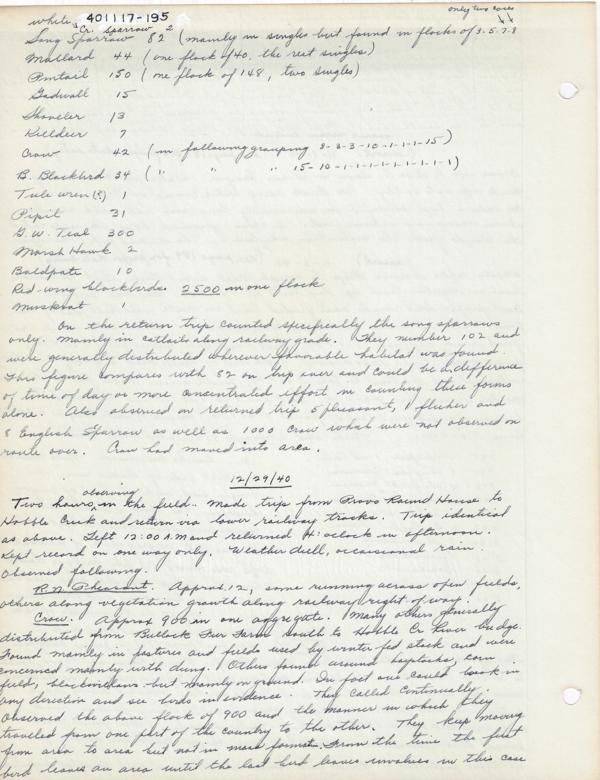 only two cases
while 401117-195
Cr. Sparrow 2
Song Sparrow 82 (mainly in singles but found in flocks of 3-5-7-8
Mallard 44 (one flock of 40, the rest singles)
Pintail 150 (one flock of 148, two singles)
Gadwall 15
Shoveler 13
Killdeer 7
Crow 42 (in following grouping 8-3-3-10-1-1-1-15)
B. Blackbird 34 ( " " " 15-10-1-1-1-1-1-1-1-1-1)
Tule wren (?) 1
Pipit 31
G.W. Teal 300
Marsh Hawk 2
Baldpate 10
Red-wing blackbirds. 2500 in one flock
Muskrat 1
On the return trip counted specifically the song sparrows
only. Mainly in cattails along railway grade. They number 102 and
were generally distributed wherever favorable habitat was found.
This figure compares with 82 on trip over and could be a difference
of time of day or more concentrated effort in counting these forms
alone. Also observed on returned trip 5 pheasant, 1 flicker and
8 English Sparrow as well as 1000 crow which were not observed on
route over. Crow had moved into area.
12/29/40
Two hours observing in the field. Made trip from Provo Round House to
Hobble Creek and return via lower railway tracks. Trip identical
as above. Left 12:00 A.M and returned 4:oclock in afternoon.
Kept record on one way only. Weather dull, occasional rain.
Observed following.
R.N. Pheasant. Approx. 12, some running across open fields,
others along vegetation growth along railway right of way.
Crow. Approx 900 in one aggregate. Many others generally
distributed from Bullock Fur Farm south to Hobble Cr River bridge.
Found mainly in pastures and fields used by winter fed stock and were
concerned mainly with dung. Others found around haystacks, corn
field, but mainly on ground. In fact one could look in
any direction and see birds in evidence. They called continually.
Observed the above flock of 900 and the manner in which they
travelled from one part of the country to the other. They keep moving
from area to area but not in mass format. From the time the first
bird leaves an area until the last bird leaves involves in this case